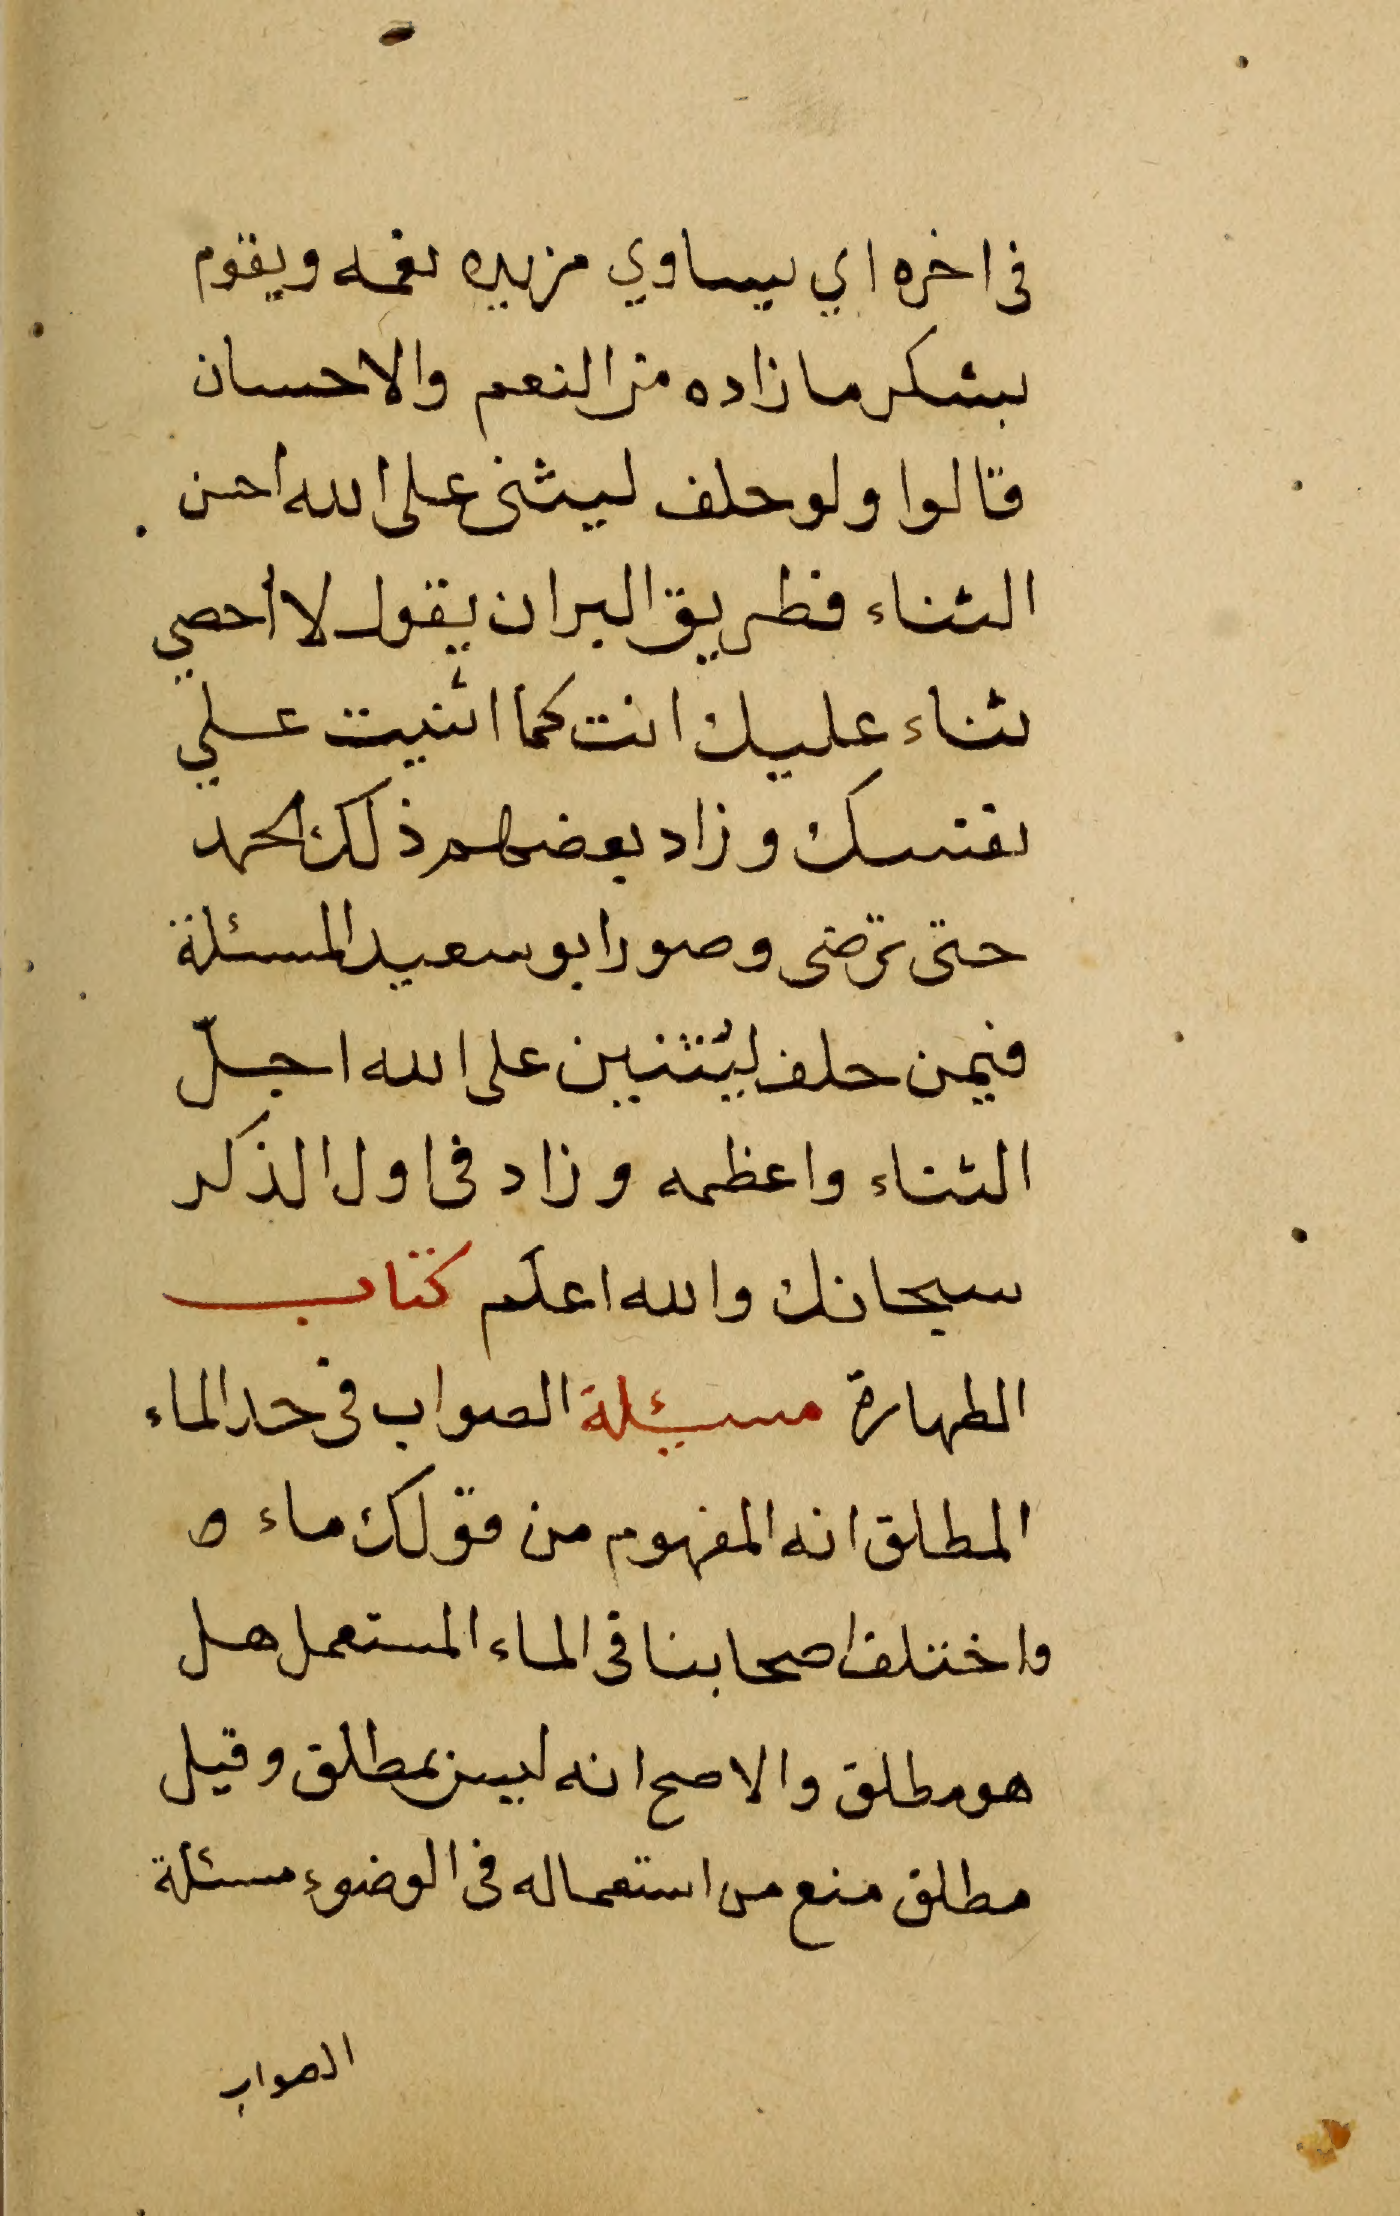 في اخره اي يساوي مزيده نعمه ويقوم
بشكر ما زاده من النعم والاحسان
قالوا ولو حلف ليثنى على الله احسن
الثناء فطريق البر ان يقول لا أحصي
ثناء عليك انت كما اثنيت علي
نفسك وزاد بعضهم ذلك الحمد
حتى ترضى وصور ابو سعيد المسئلة
فيمن حلف ليُثنين على الله اجلّ
الثناء واعظمه وزاد في اول الذكر
سبحانك والله اعلم كتاب
الطهارة مسيئلة الصواب في حد الماء
المطلق انه المفهوم من قولك ماء
واختلف اصحابنا في الماء المستعمل هل
هو مطلق والاصح انه ليس بمطلق وقيل
مطلق منع من استعماله في الوضوء مسئلة
الصواب